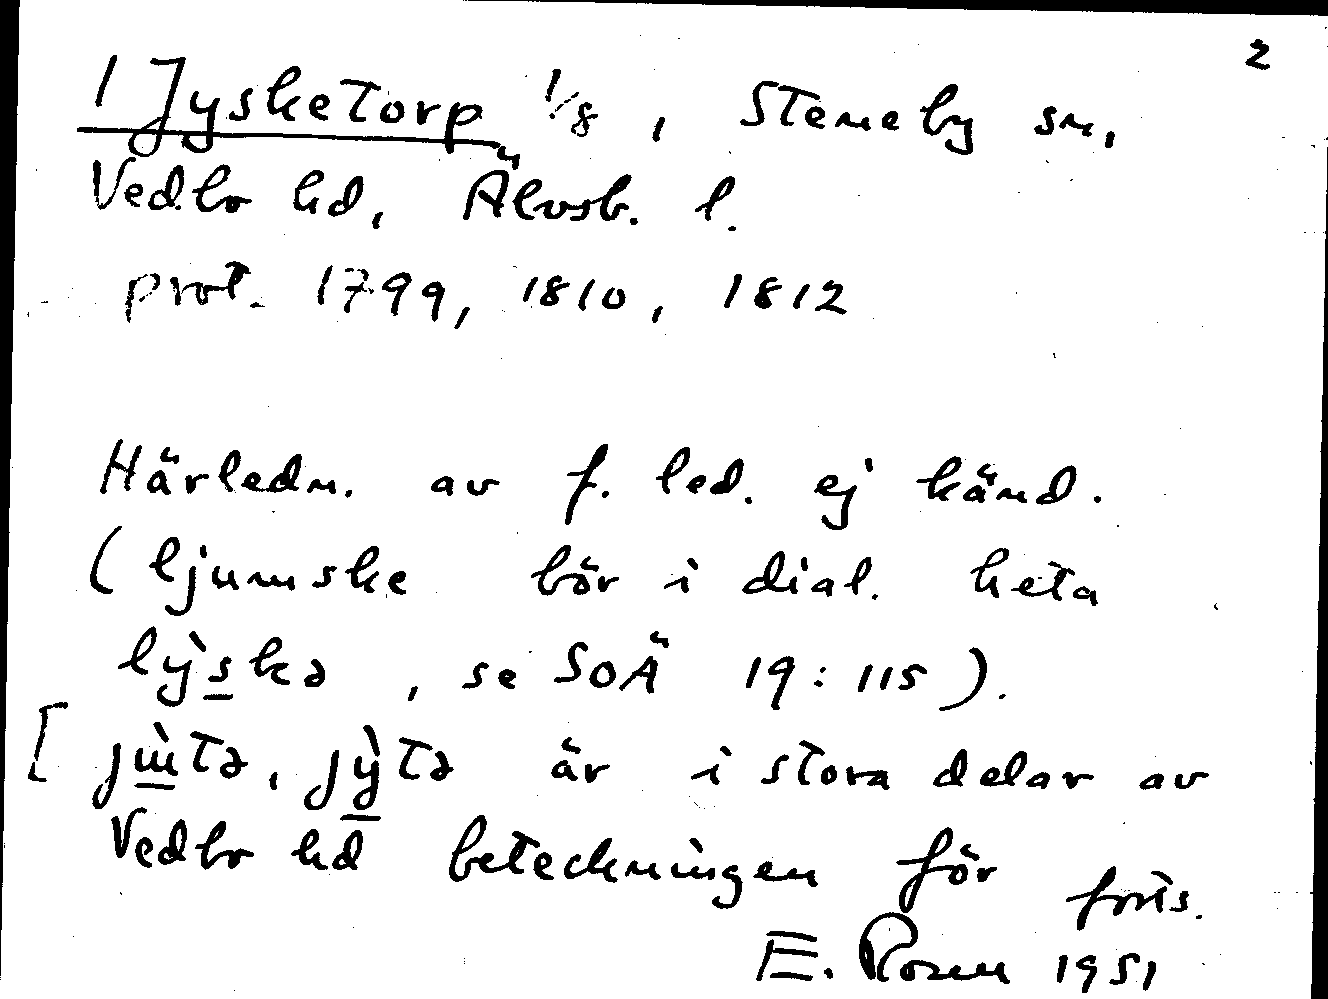 2
1 Jysketorp 1/8, Steneby sn,
Vedbo hd, Älvsb. l.
prot. 1799, 1810, 1812
Härledn. av f. led. ej känd.
(ljumske bör i dial. heta
lỳskə, se SOÄ 19:115).
[jɯ̀tə, jỳtə är i stora delar av
Vedbo hd beteckningen för forts.
E. Rosell 1951